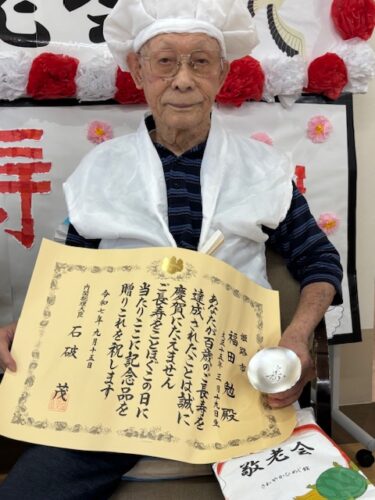 寿
姫路市
福田 勉 殿
大正十五年三月十九日生
あなたが百歳のご長寿を
達成されたことは誠に
慶賀にたえません
ご長寿をことほぐこの日に
当たりここに記念品を
贈りこれを祝します
令和七年九月十五日
内閣総理大臣 石破 茂
敬老会